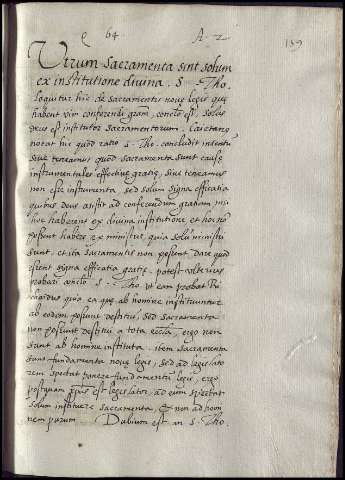 q 64. A. 2
159
Utrum Sacramenta sint solum
ex institutione divina. S. Tho.
loquitur hic de sacramentis novę legis quę
habent vim conferendi gram, conclo est, solus
deus est institutor sacramentorum. Caietanus
notat hic quod ratio S. Tho. concludit intentū
sive teneamus quod sacramenta sunt causę
instrumentales effectivę gratię, sive teneamus
non esse instrumenta, sed solum signa efficatia
quibus deus assistit ad conferendum gratiam
hoc haberent ex divina institutione et hoc non
possunt habere ex ministris, quia solū ministri
sunt. et ita sacramentis non possunt dare quod
essent signa efficatia gratię. potest ulterius
probari conclo S. Tho. ut eam probat
quia ea quę ab homine instituuntur
ab eodem possunt destitui, sed sacramenta
non possunt destitui a tota eccla, ergo non
sunt ab homine instituta. item sacramenta
sunt fundamenta novę legis, sed ad legislato
rem spectat ponere fundamenta legis, ergo
postquam xpus est legislator, ad eum spectat
solum instituere sacramenta, et non ad homi
nem purum. Dubium est an S. Tho.